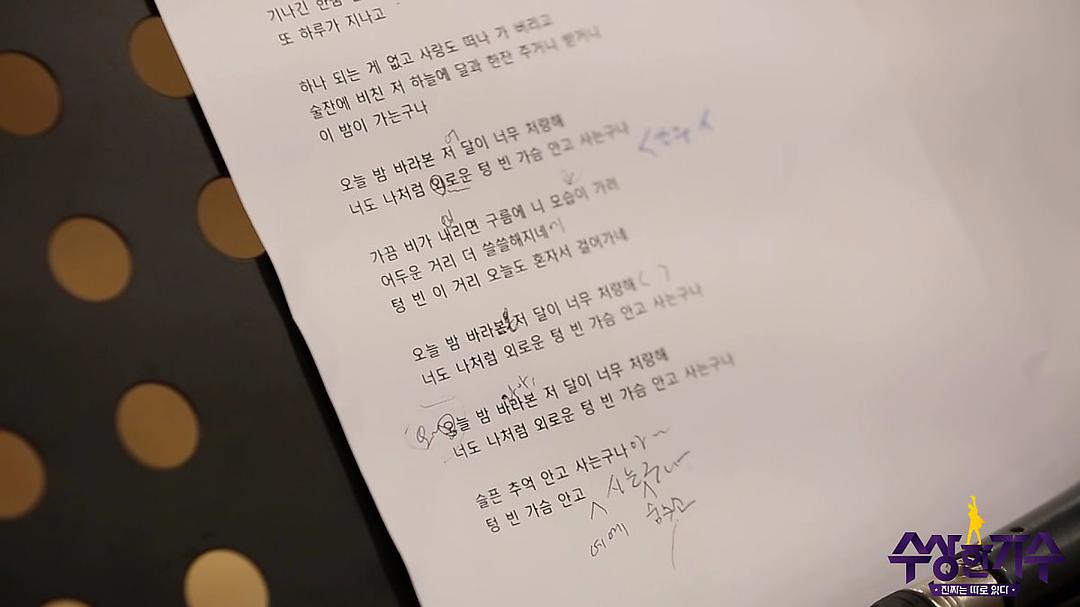 기나긴 한숨
또 하루가 지나고
하나 되는 게 없고 사랑도 떠나 가 버리고
술잔에 비친 저 하늘에 달과 한잔 주거니 받거니
이 밤이 가는구나
오늘 밤 바라본 저 달이 너무 처량해
너도 나처럼 외로운 텅 빈 가슴 안고 사는구나
가끔 비가 내리면 구름에 니 모습이 가려
어두운 거리 더 쓸쓸해지네
텅 빈 이 거리 오늘도 혼자서 걸어가네
오늘 밤 바라본 저 달이 너무 처량해
너도 나처럼 외로운 텅 빈 가슴 안고 사는구나
오늘 밤 바라본 저 달이 너무 처량해
너도 나처럼 외로운 텅 빈 가슴 안고 사는구나
슬픈 추억 안고 사는구나 아~
텅 빈 가슴 안고 사는구나
여에 숨쉬고
수상한 가수
진짜는 따로 있다